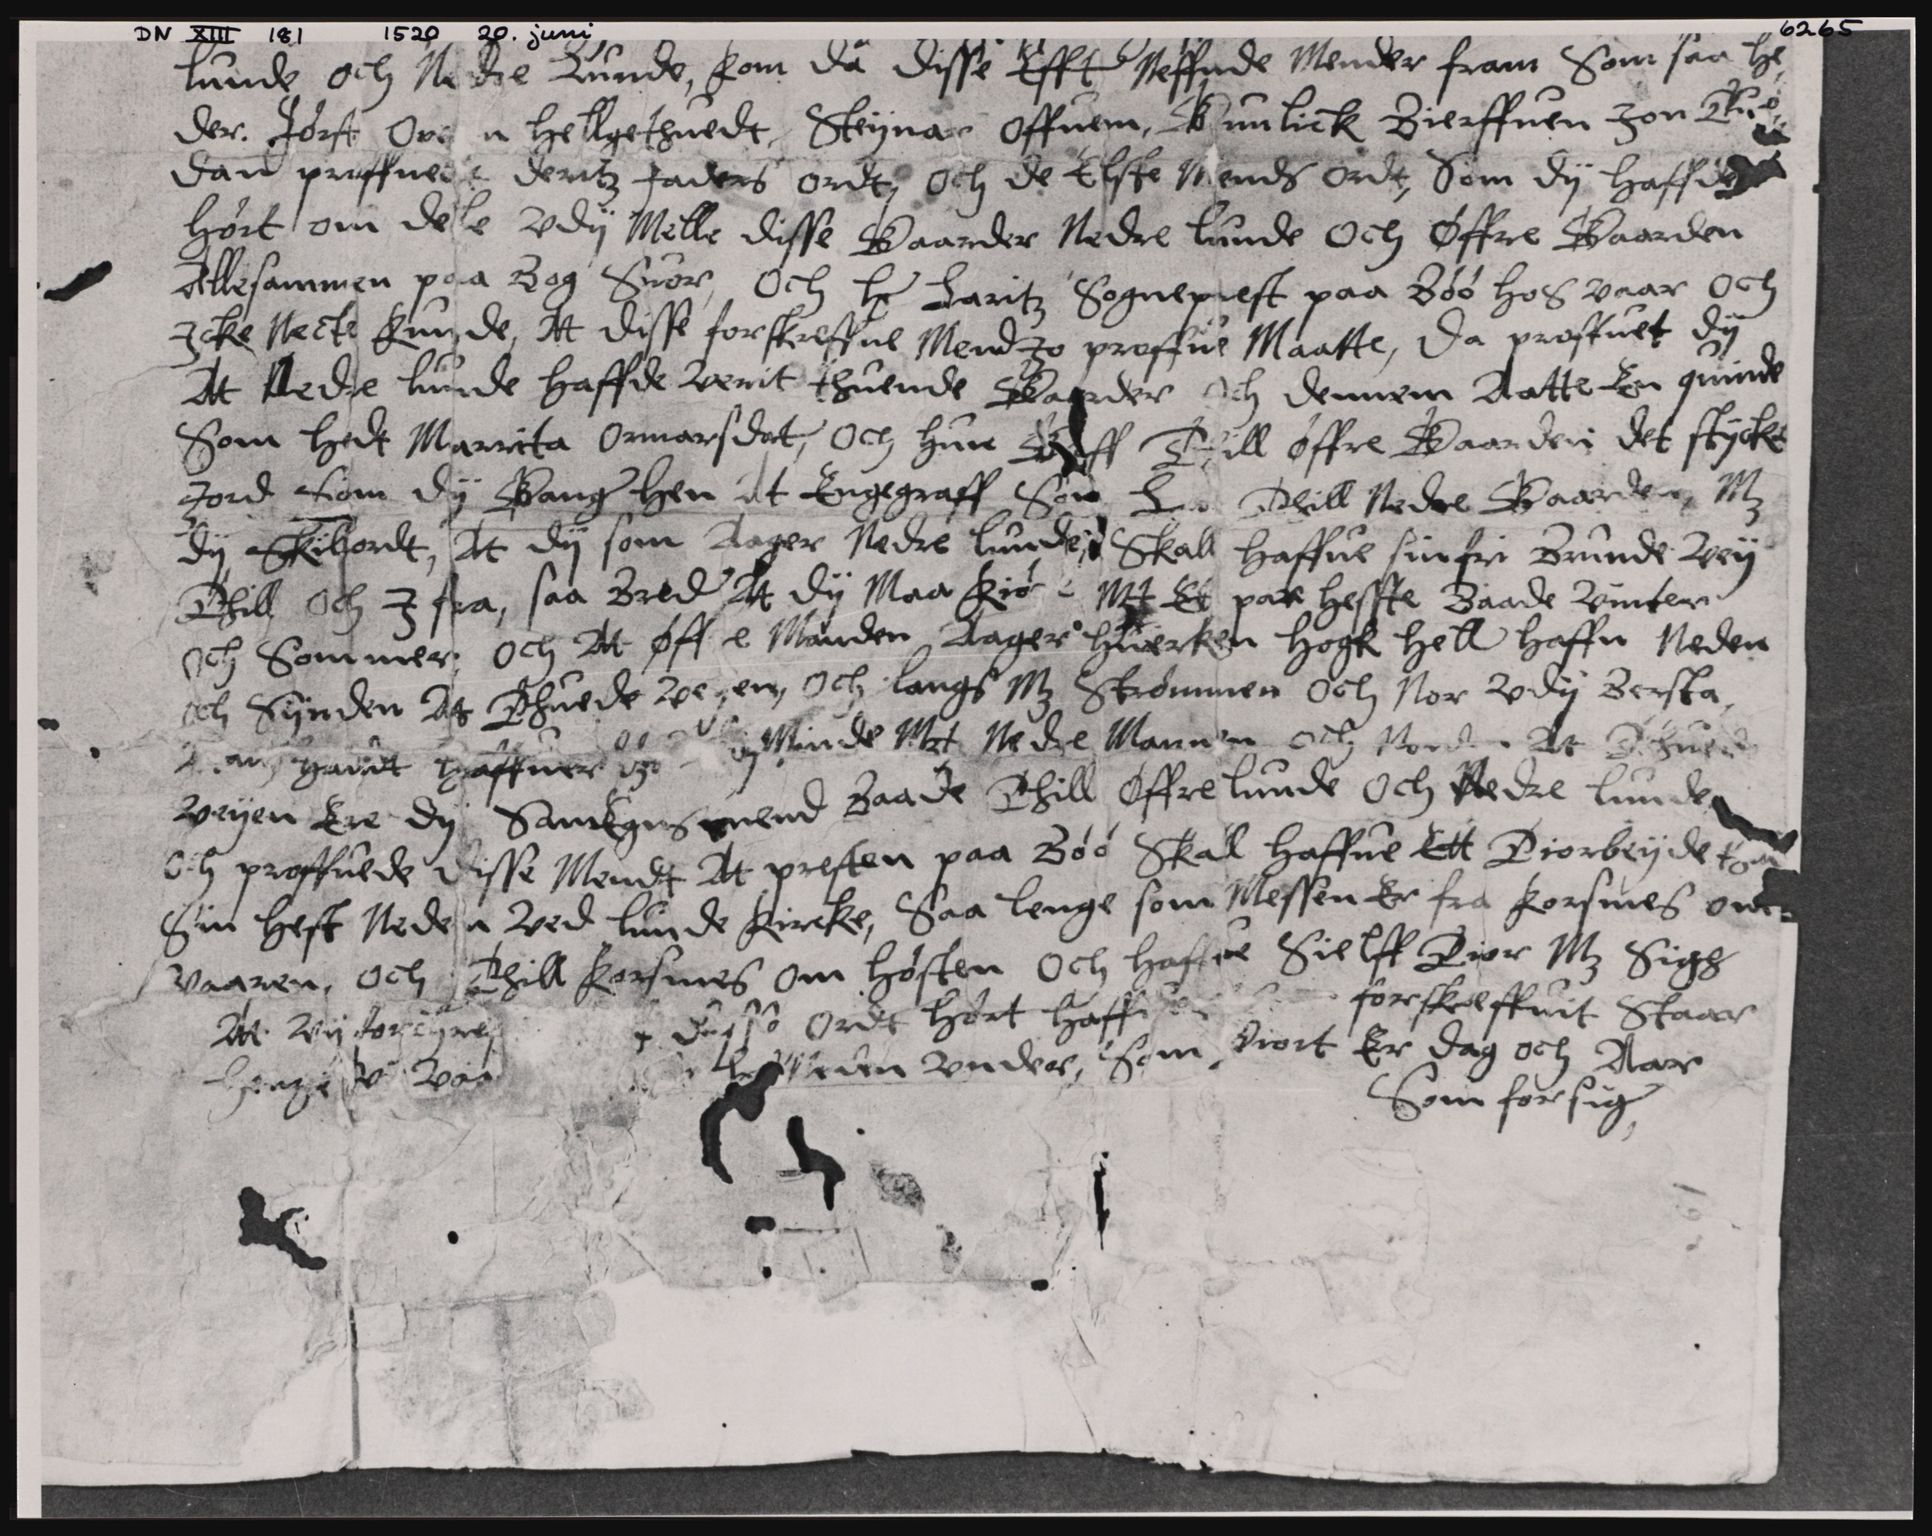 DN XIII 181 1520 20. juni 6265
lunde och Nedre Lunde, kom da disse Efft Neffnde Mender fram Som saa he
der. Først Ore n Hellgethuedt, Steynar offuem, Gunlick Bierffuen Jon
dan prøffuede deritz faders ordt, och de Elste Mends ordt, Som dÿ haffde
hørt om dele vdÿ Melle disse Gaarder Nedre lunde och Øffre Gaarden
Allesammen paa Bog Suor, och her Laritz Sogneprest paa Bøø hos vaar och
Jcke Necte kunde, At disse forskreffne Mend Jo prøffue Maatte, da prøffuet dÿ
At Nedre lunde haffde verit thuende Gaarder och dennem Aatte En quinde
Som hedt Marrita Ormarsdat, och hun Gaff Thill øffre Gaarden det stycke
Jord Som dÿ Gang hen At Engegraff Som Thill Nedre Gaarden, Mz
dÿ Skilordt, At dÿ som Aager Nedre lunde, Skall haffue sin fri Brunde Veÿ
Thill och J fra, saa Bred At dÿ Maa kiøre Mt Et par heste Baade Vinter
och Sommer, och At øffre Manden Aager huerken hogk hell haffn Neden
och Synden At Thuede Veyen, och langs Mz Strømmen och Nor vdÿ Bersta,
haffuer Minde Mt Nedre Mannen och Norden At Thuede
Veÿen Ere dÿ SamEgnsmend Baade Thill Øffre lunde och Nedre lunde
Och prøffuede disse Mendt At presten paa Bøø Skal haffue Ett Tiorbeÿde
Sin hest Neden Ved lunde kircke, Saa lenge som Messen Er fra korsmes om
Vaaren, och Thill korsmes om høsten och haffue Sielff Tior Mz Sigh
At Vÿ disse ordt hørt haffuer forskreffuit Staar
Neden vnder, Som giort Er dag och Aar
Som for sig,